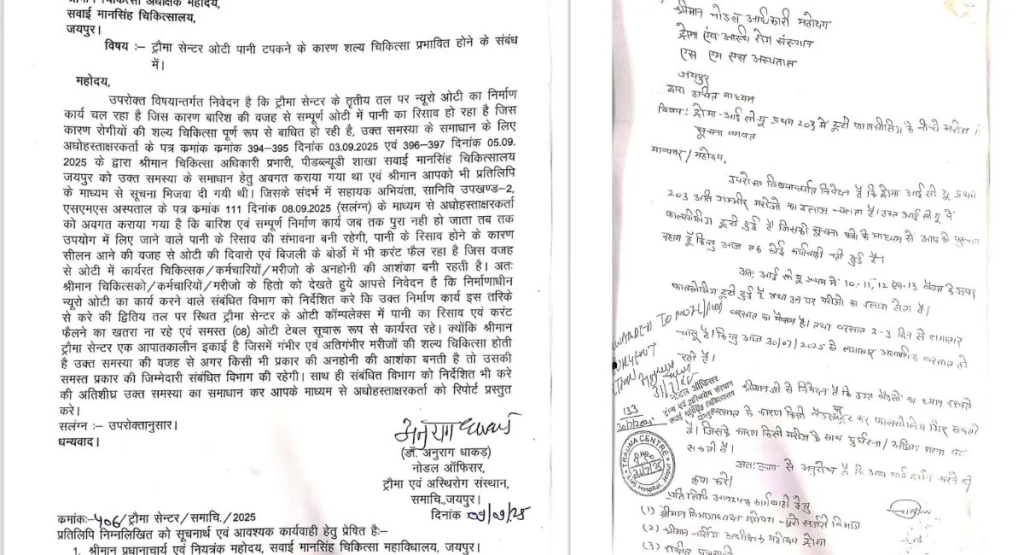 श्रीमान चिकित्सा अधीक्षक महोदय,
सवाई मानसिंह चिकित्सालय,
जयपुर।
विषय :– ट्रौमा सेन्टर ओटी पानी टपकने के कारण शल्य चिकित्सा प्रभावित होने के संबंध
में।
महोदय,
उपरोक्त विषयान्तर्गत निवेदन है कि ट्रौमा सेन्टर के तृतीय तल पर न्यूरो ओटी का निर्माण
कार्य चल रहा है जिस कारण बारिश की वजह से सम्पूर्ण ओटी में पानी का रिसाव हो रहा है जिस
कारण रोगीयों की शल्य चिकित्सा पूर्ण रूप से बाधित हो रही है, उक्त समस्या के समाधान के लिए
अधोहस्ताक्षरकर्ता के पत्र कमांक कमांक 394-395 दिनांक 03.09.2025 एवं 396-397 दिनांक 05.09.
2025 के द्वारा श्रीमान चिकित्सा अधिकारी प्रभारी, पीडब्ल्यूडी शाखा सवाई मानसिंह चिकित्सालय
जयपुर को उक्त समस्या के समाधान हेतु अवगत कराया गया था एवं श्रीमान आपको भी प्रतिलिपि
के माध्यम से सूचना भिजवा दी गयी थी। जिसके संदर्भ में सहायक अभियंता, सानिवि उपखण्ड-2,
एसएमएस अस्पताल के पत्र कमांक 111 दिनांक 08.09.2025 (सलंग्न) के माध्यम से अधोहस्ताक्षरकर्ता
को अवगत कराया गया है कि बारिश एवं सम्पूर्ण निर्माण कार्य जब तक पुरा नही हो जाता तब तक
उपयोग में लिए जाने वाले पानी के रिसाव की संभावना बनी रहेगी, पानी के रिसाव होने के कारण
सीलन आने की वजह से ओटी की दिवारो एवं बिजली के बोर्डो में भी करंट फैल रहा है जिस वजह
से ओटी में कार्यरत चिकित्सक/कर्मचारियों/मरीजो के अनहोनी की आशंका बनी रहती है। अतः
श्रीमान चिकित्सको/कर्मचारियों/मरीजो के हितो को देखते हुये आपसे निवेदन है कि निर्माणाधीन
न्यूरो ओटी का कार्य करने वाले संबंधित विभाग को निर्देशित करे कि उक्त निर्माण कार्य इस तरिके
से करे की द्वितिय तल पर स्थित ट्रौमा सेन्टर के ओटी कॉम्पलेक्स में पानी का रिसाव एवं करंट
फैलने का खतरा ना रहे एवं समस्त (08) ओटी टेबल सूचारू रूप से कार्यरत रहे। क्योंकि श्रीमान
ट्रौमा सेन्टर एक आपातकालीन इकाई है जिसमें गंभीर एवं अतिगंभीर मरीजों की शल्य चिकित्सा होती
है उक्त समस्या की वजह से अगर किसी भी प्रकार की अनहोनी की आशंका बनती है तो उसकी
समस्त प्रकार की जिम्मेदारी संबंधित विभाग की रहेगी। साथ ही संबंधित विभाग को निर्देशित भी करे
की अतिशीघ्र उक्त समस्या का समाधान कर आपके माध्यम से अधोहस्ताक्षरकर्ता को रिपोर्ट प्रस्तुत
करे।
सलंग्न :– उपरोक्तानुसार।
धन्यवाद।
(डॉ. अनुराग धाकड़)
नोडल ऑफिसर,
ट्रौमा एवं अस्थिरोग संस्थान,
समाचि.,जयपुर।
दिनांक 09/09/25
कमांकः-406/ट्रौमा सेन्टर/समाचि./2025
प्रतिलिपि निम्नलिखित को सूचनार्थ एवं आवश्यक कार्यवाही हेतु प्रेषित हैः-
1. श्रीमान प्रधानाचार्य एवं नियत्रंक महोदय, सवाई मानसिंह चिकित्सा महाविधालय, जयपुर।
श्रीमान नोडल अधिकारी महोदय
ट्रोमा एंव अस्थि रोग संस्थान
एस एम एस अस्पताल
जयपुर
द्वारा उचित माध्यम
विषय: ट्रोमा आई सी यू प्रथम 203 में टूटी फालसीलिंग के नीचे मरीज
मान्यवर/महोदय,
उपरोक्त विषयान्तर्गत निवेदन है कि ट्रोमा आई सी यू प्रथम
203 अति गम्भीर मरीजो का इलाज चलता है। उक्त आई सी यू में
फालसीलिंग टूटी हुई है जिसकी सूचना के माध्यम से आपको
किन्तु आज तक कोई कार्यवाही नही हुई है।
अतः आई सी यू प्रथम में 10-11, 12 एवं 13 के ऊपर
फालसीलिंग टूटी हुई है तथा उन पर मरीजो का इलाज होता है।
बरसात का मौसम है। तथा बरसात 2-3 दिन से लगातार
चालू है। किन्तु आज 30/07/2025 को लगातार बरसात हो
रही है।
श्रीमानजी से निवेदन है कि उक्त का ध्यान रखते
के कारण किसी पर फालसीलिंग गिर सकती
है। जिसके कारण किसी मरीज के साथ दुर्घटना/अप्रिय घटना घट
सकती है।
अतः आप से अनुरोध है कि
कृपा करे।
नोडल ऑफिसर
133
TRAUMA CENTRE
SMS Hospital, Jaipur
प्रतिलिपि आवश्यक कार्यवाही हेतु
(1) श्रीमान विभागाध्यक्ष महोदय न्यूरो सर्जरी विभाग
(2) श्रीमान नर्सिंग अधीक्षक महोदय ट्रोमा
(3)